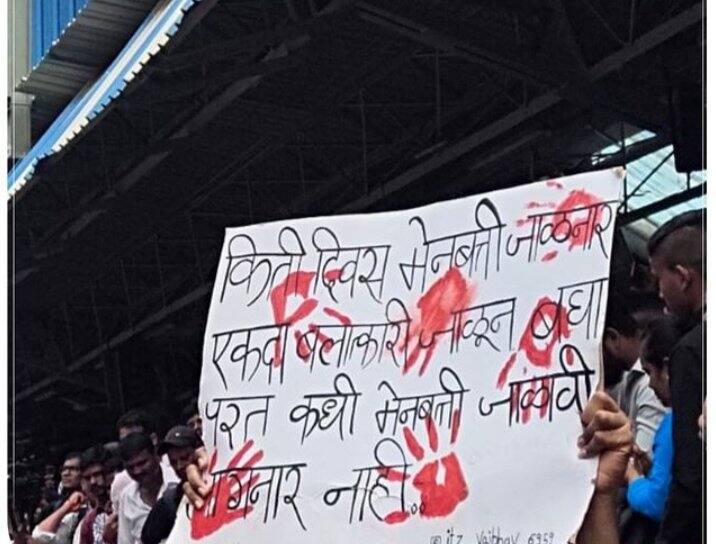 किती दिवस मेनबत्ती जाळनार
एकदा बलात्कारी जाळून बघा
परत कधी मेनबत्ती जाळावी
लागनार नाही..
@itz_vaibhav_5959